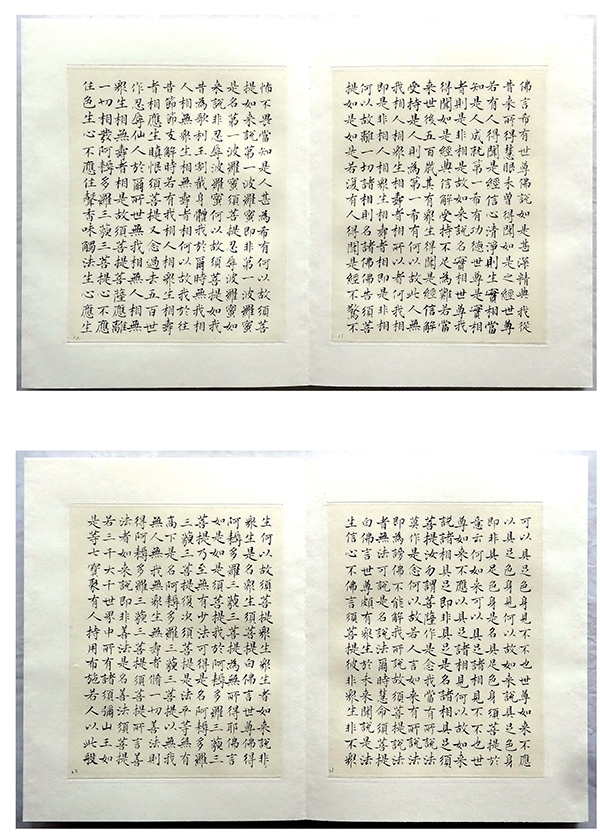 佛言希有世尊佛說如是甚深經典我從
昔來所得慧眼未曾得聞如是之經世尊
若有人得聞是經信心清淨則生實相當
知是人成就第一希有功德世尊是實相
者則是非相是故如來說名實相世尊我
得聞如是經典信解受持不足為難若當
來世後五百歲其有眾生得聞是經信解
受持是人則為第一希有何以故此人無
我相人相眾生相壽者相所以者何我相
即是非相人相眾生相壽者相即是非相
何以故離一切諸相則名諸佛佛告須菩
提如是如是若復有人得聞是經不驚不
怖不畏當知是人甚為希有何以故須菩
提如來說第一波羅蜜即非第一波羅蜜
是名第一波羅蜜須菩提忍辱波羅蜜如
來說非忍辱波羅蜜何以故須菩提如我
昔為歌利王割截身體我於爾時無我相
人相無眾生相無壽者相何以故我於往
昔節節支解時若有我相人相眾生相壽
者相應生瞋恨須菩提又念過去五百世
作忍辱仙人於爾所世無我相無人相無
眾生相無壽者相是故須菩提菩薩應離
一切相發阿耨多羅三藐三菩提心不應
住色生心不應住聲香味觸法生心應生
可以具足色身見不不也世尊如來不應
以具足色身見何以故如來說具足色身
即非具足色身是名具足色身須菩提於
意云何如來可以具足諸相見不不也世
尊如來不應以具足諸相見何以故如來
說諸相具足即非具足是名諸相具足須
菩提汝勿謂菩薩作是念我當有所說法
莫作是念何以故若人言如來有所說法
即為謗佛不能解我所說故須菩提說法
者無法可說是名說法爾時慧命須菩提
白佛言世尊頗有眾生於未來聞說是法
生信心不佛言須菩提彼非眾生非不眾
生何以故須菩提眾生眾生者如來說非
眾生是名眾生須菩提白佛言世尊佛得
阿耨多羅三藐三菩提為無所得耶佛言
如是如是須菩提我於阿耨多羅三藐三
菩提乃至無有少法可得是名阿耨多羅
三藐三菩提復次須菩提是法平等無有
高下是名阿耨多羅三藐三菩提以無我
無人無眾生無壽者修一切善法則
得阿耨多羅三藐三菩提須菩提所言善
法者如來說即非善法是名善法須菩提
若三千大千世界中所有諸須彌山王如
是等七寶聚有人持用布施若人以此般